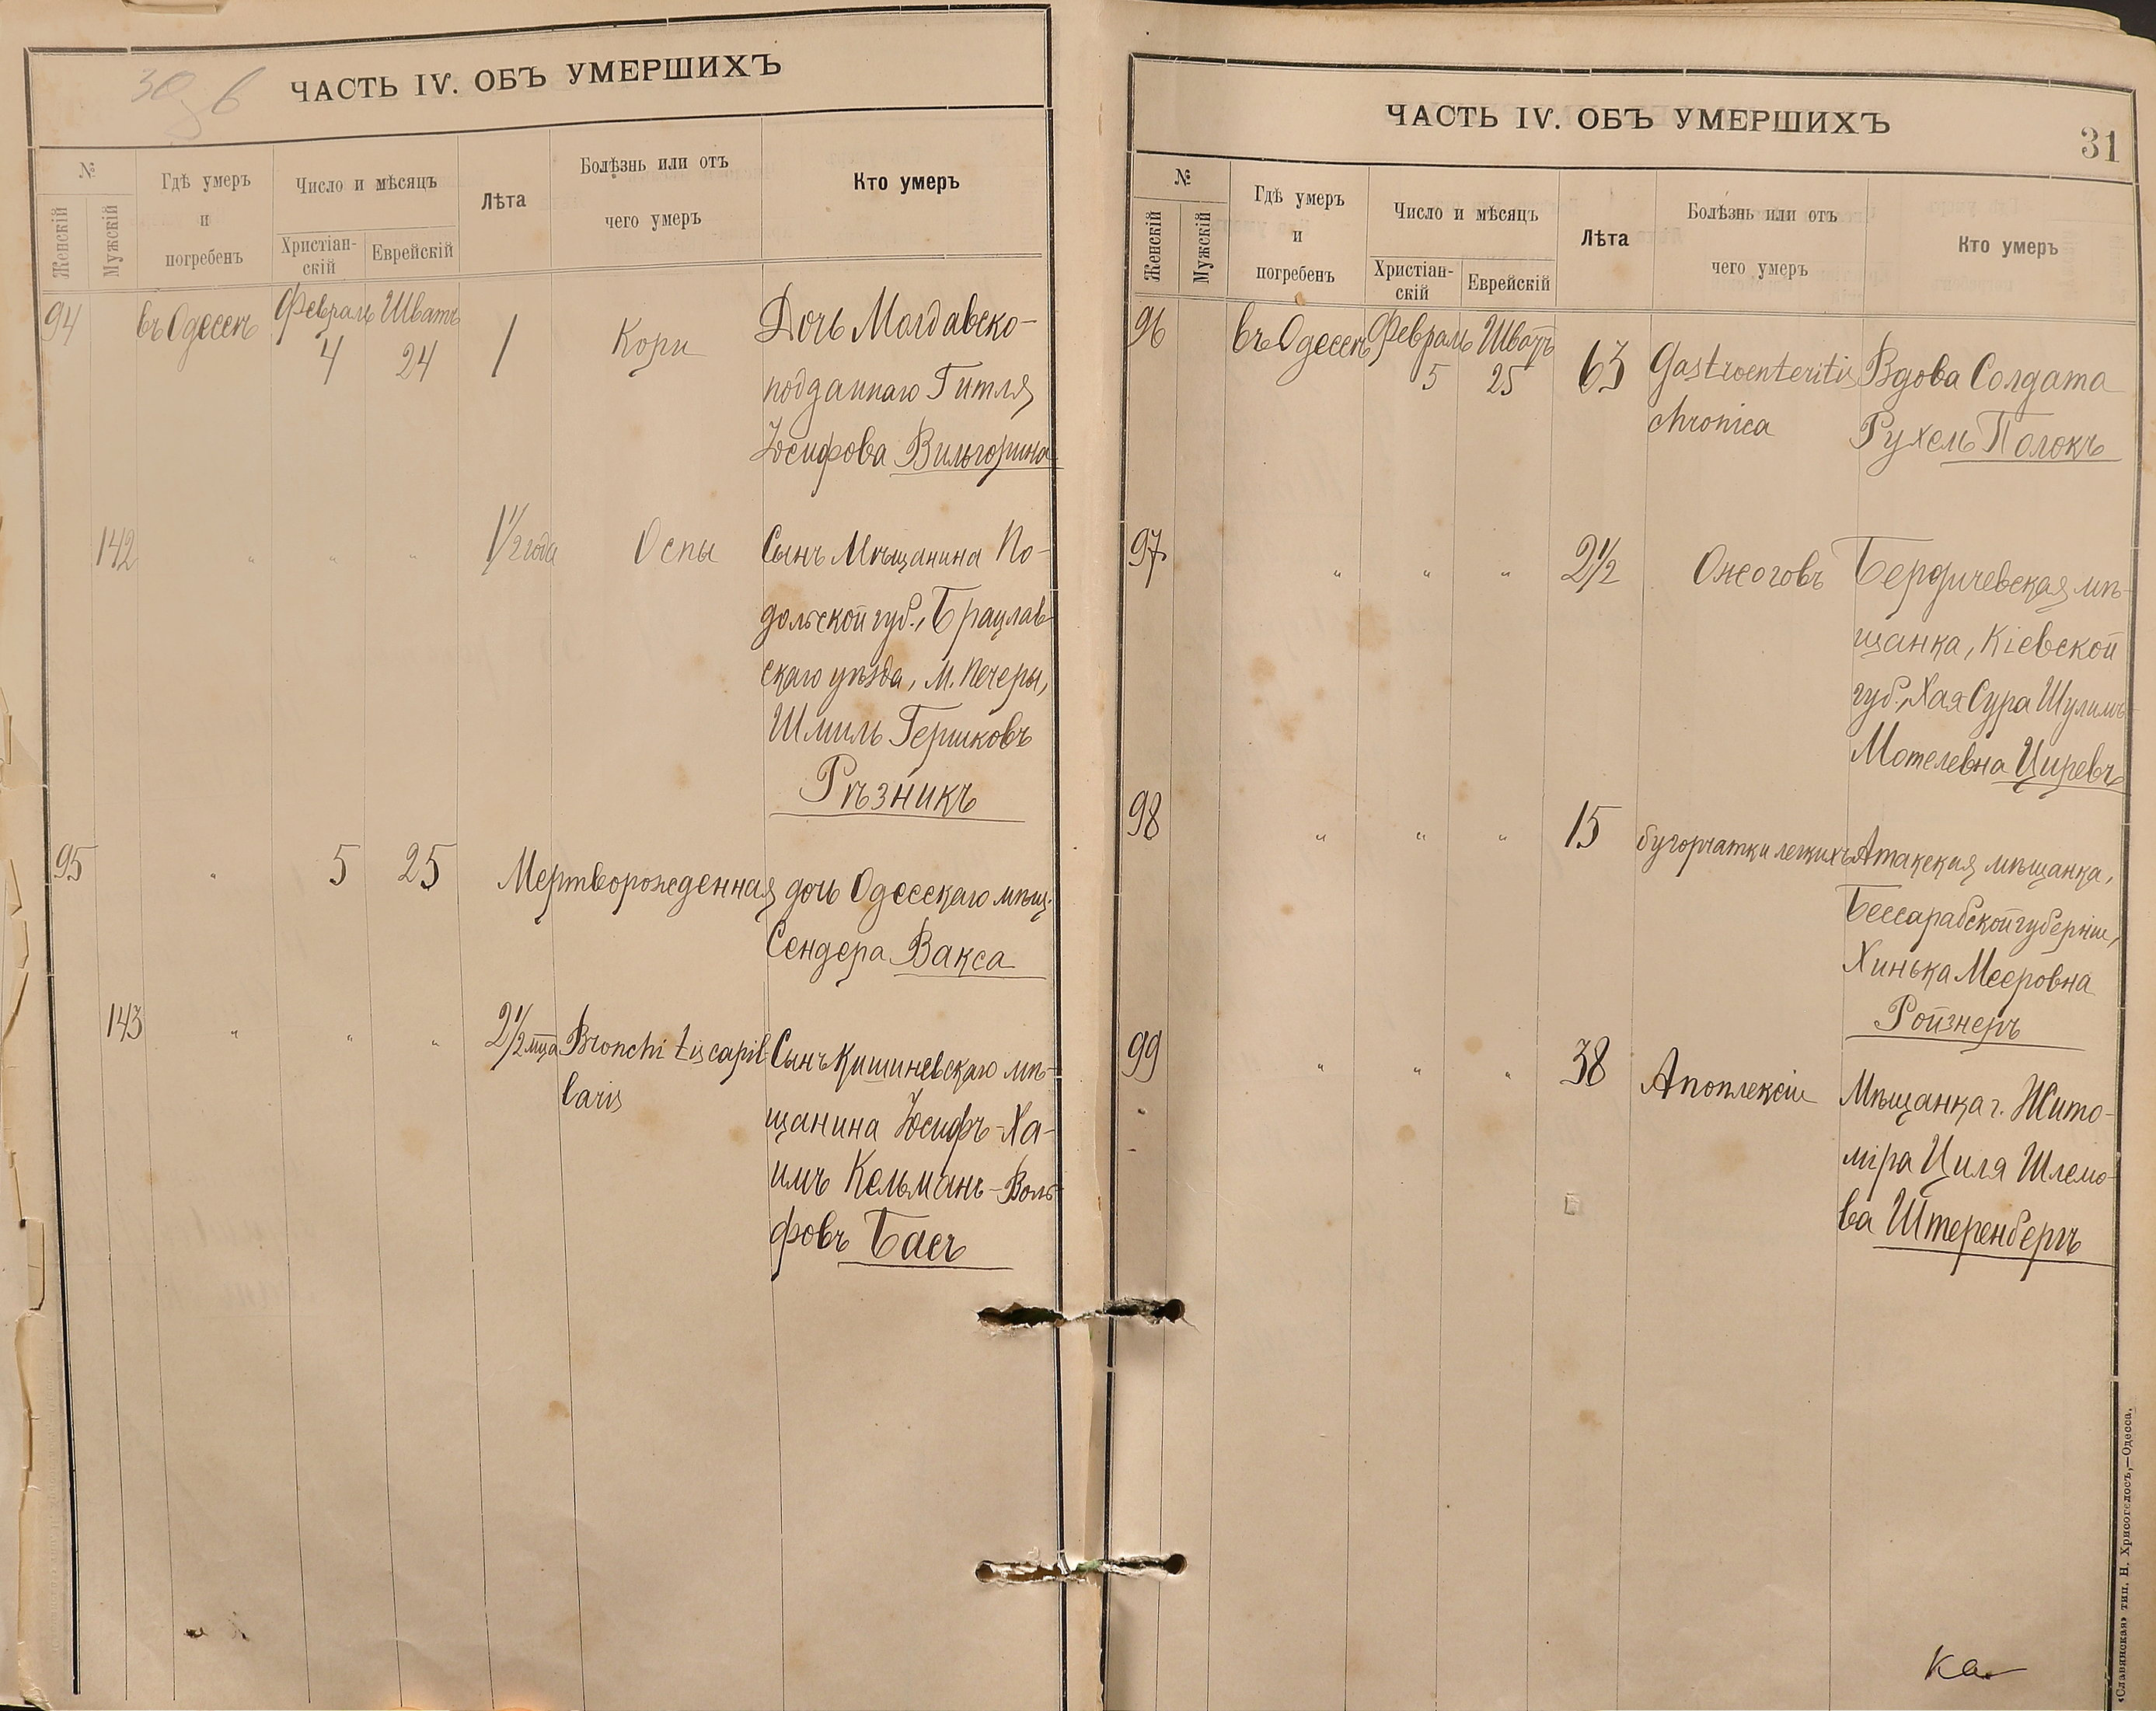 30 в
ЧАСТЬ IV. ОБЪ УМЕРШИХЪ
№
Женскій
Мужскій
Гдѣ умеръ
и
погребенъ
Число и мѣсяцъ
Христіан-
скій
Еврейскій
Лѣта
Болѣзнь или отъ
чего умеръ
Кто умеръ
94 въ Одессѣ Февраль 4 Шватъ 24 1 Кори Дочь Молдавско-
подданнаго Гитля
Іосифова Вильгорина
142 " " " 1 1/2 года Оспы Сынъ Мѣщанина По-
дольской губ., Брацлав-
скаго уѣзда, м. Печеры,
Шмиль Гершковъ
Рѣзникъ
95 " 5 25 Мертворожденная дочь Одесскаго мѣщ.
Сендера Вакса
143 " " " 2 1/2 мца Bronchitis capil- Сынъ Кишиневскаго мѣ-
laris
щанина Іосифъ-Ха-
имъ Кельманъ-Воль-
фовъ Басъ
ЧАСТЬ IV. ОБЪ УМЕРШИХЪ
31
№
Женскій
Мужскій
Гдѣ умеръ
и
погребенъ
Число и мѣсяцъ
Христіан-
скій
Еврейскій
Лѣта
Болѣзнь или отъ
чего умеръ
Кто умеръ
96 въ Одессѣ Февраль 5 Шватъ 25 63 Gastroenteritis Вдова Солдата
chronica Рухель Полокъ
97 " " " 2 1/2 Ожоговъ Бердичевская мѣ-
щанка, Кіевской
губ., Хая Сура Шулимъ-
Мотелевна Циревъ
98 " " " 15 бугорчатки легкихъ Атакская мѣщанка,
Бессарабской губерніи,
Хинька Мееровна
Ройзнеръ
99 " " " 38 Апоплексіи Мѣщанка г. Жито-
міра Циля Шлемо-
ва Штеренбергъ
«Славянская» тип. Н. Хрисогелосъ,—Одесса.